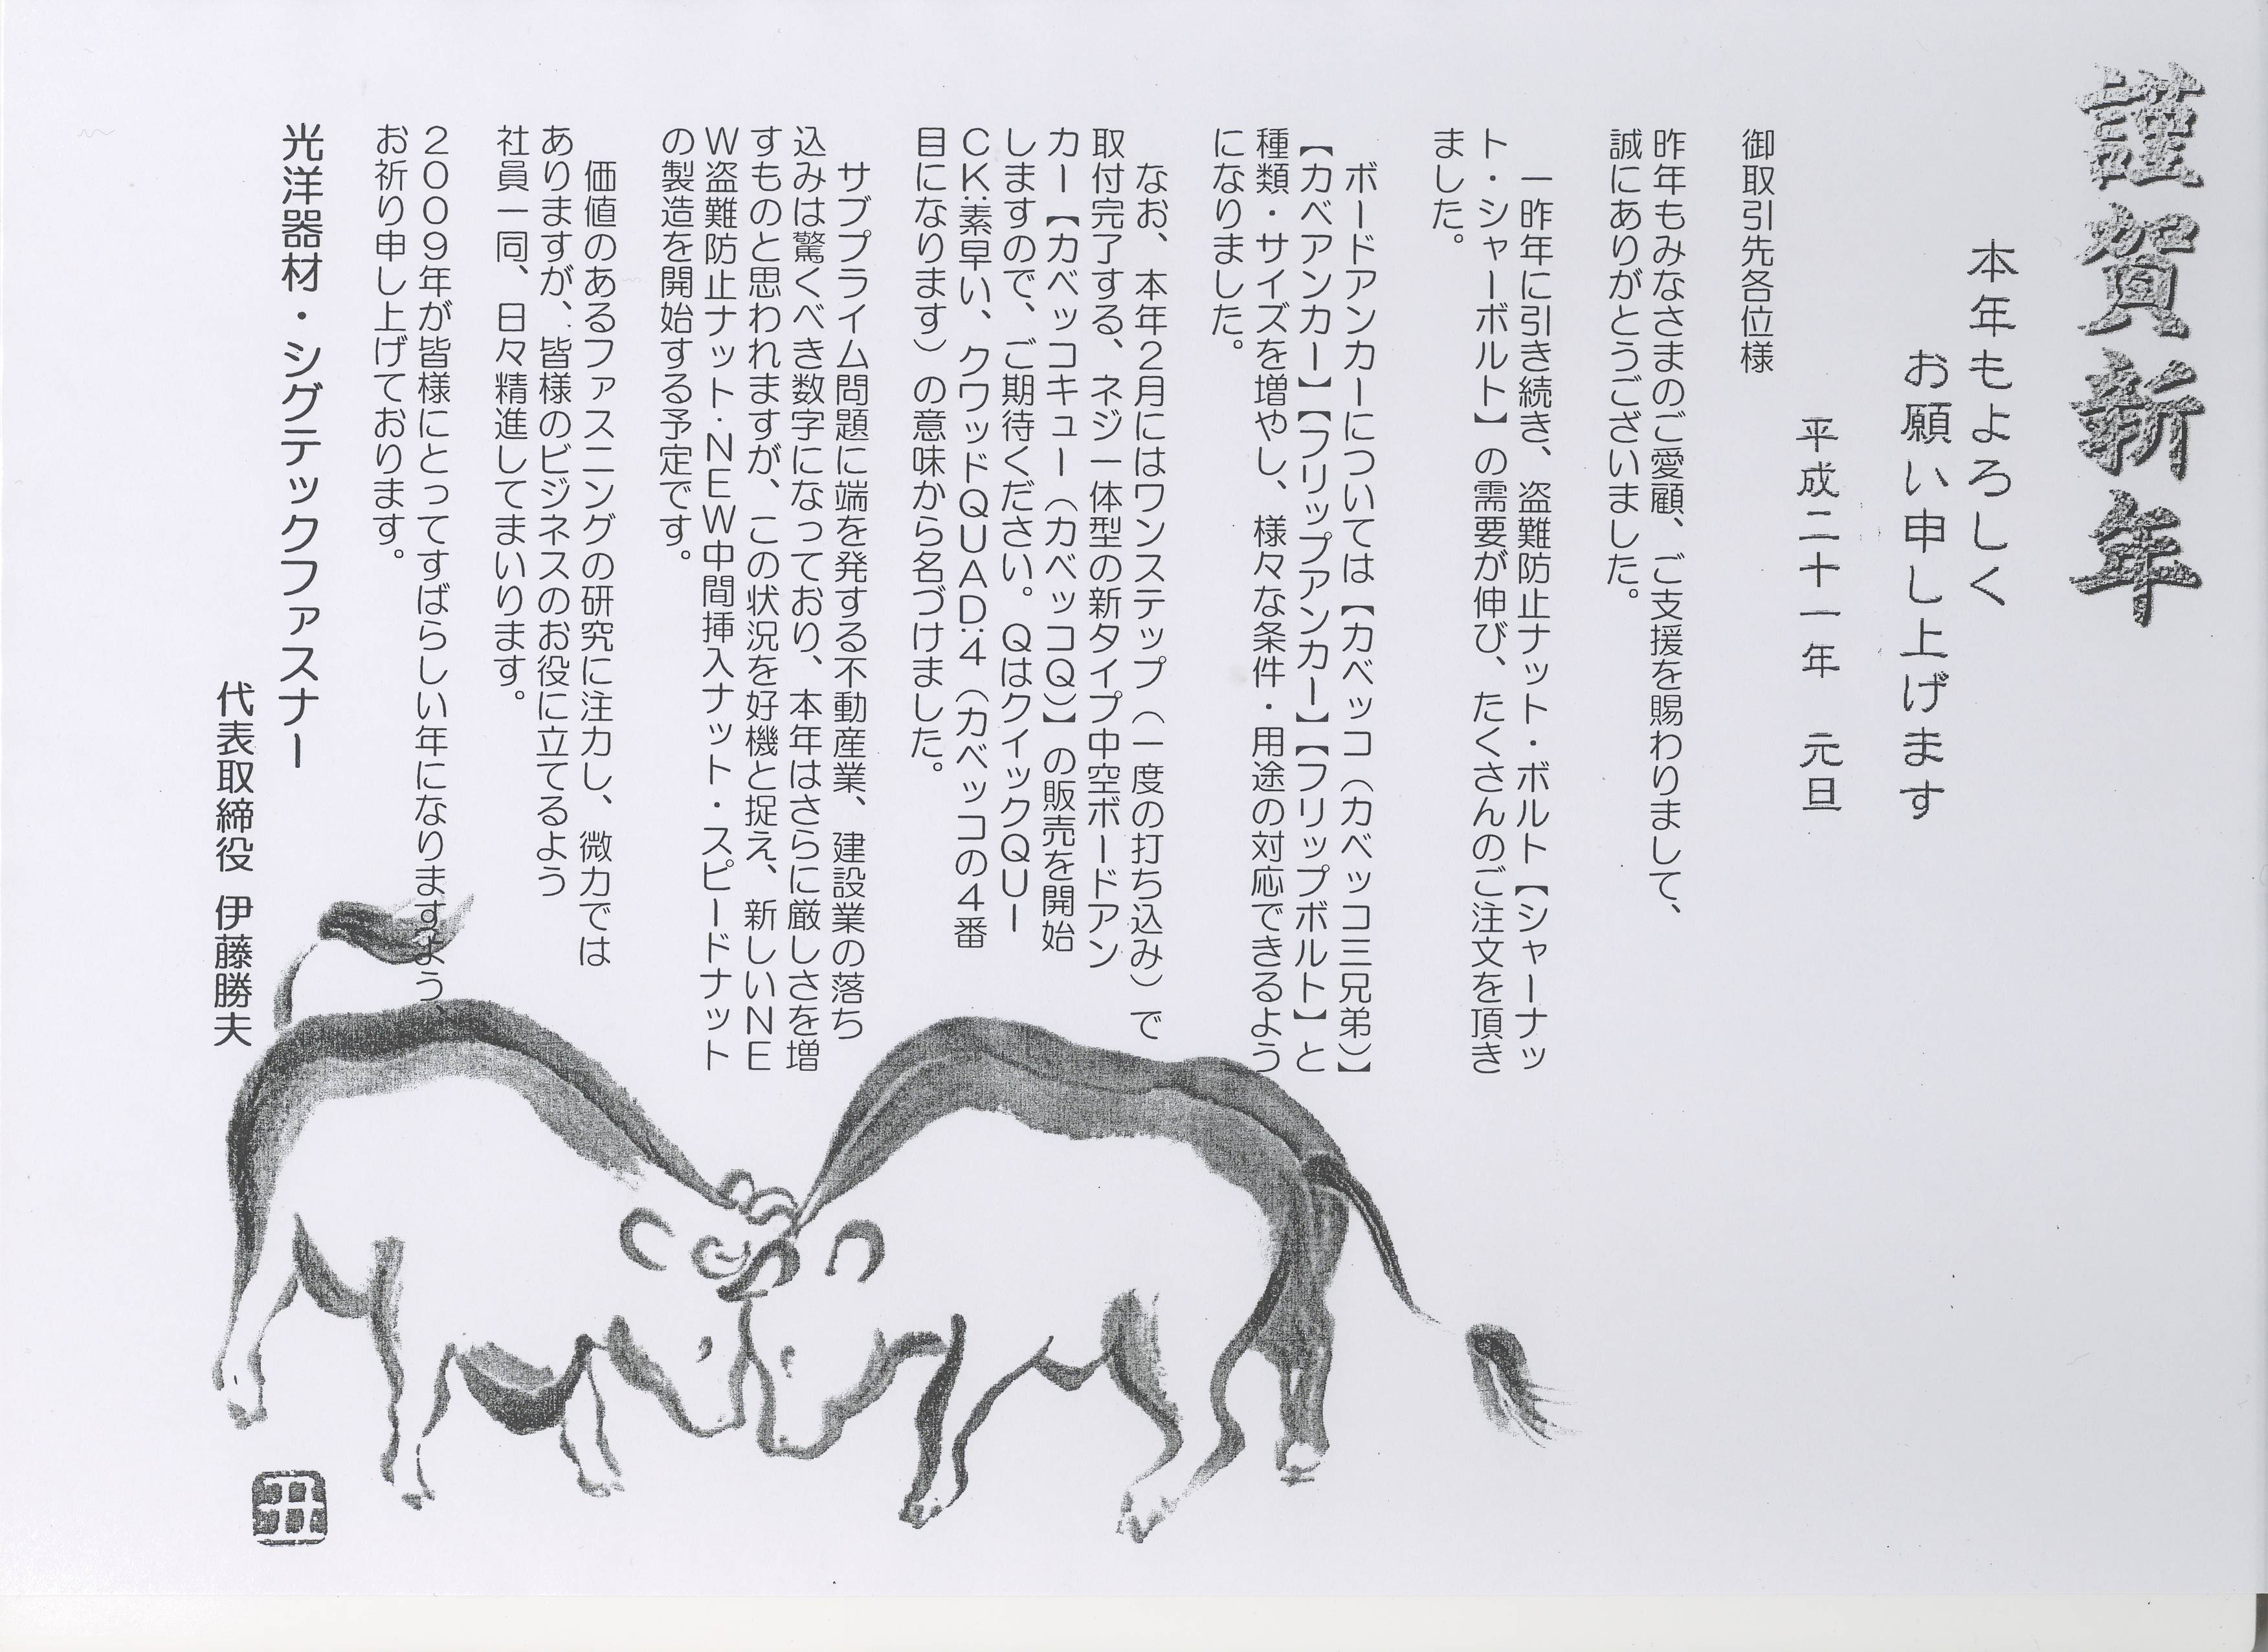 謹賀新年
本年もよろしく
お願い申し上げます
平成二十一年　元旦
御取引先各位様
昨年もみなさまのご愛顧、ご支援を賜わりまして、
誠にありがとうございました。
一昨年に引き続き、盗難防止ナット・ボルト【シャーナッ
ト・シャーボルト】の需要が伸び、たくさんのご注文を頂き
ました。
ボードアンカーについては【カベッコ（カベッコ三兄弟）】
【カベアンカー】【フリップアンカー】【フリップボルト】と
種類・サイズを増やし、様々な条件・用途の対応できるよう
になりました。
なお、本年２月にはワンステップ（一度の打ち込み）で
取付完了する、ネジ一体型の新タイプ中空ボードアン
カー【カベッコキュー（カベッコＱ）】の販売を開始
しますので、ご期待ください。ＱはクイックＱＵＩ
ＣＫ:素早い、クワッドＱＵＡＤ:４（カベッコの４番
目になります）の意味から名づけました。
サブプライム問題に端を発する不動産業、建設業の落ち
込みは驚くべき数字になっており、本年はさらに厳しさを増
すものと思われますが、この状況を好機と捉え、新しいＮＥ
Ｗ盗難防止ナット・ＮＥＷ中間挿入ナット・スピードナット
の製造を開始する予定です。
価値のあるファスニングの研究に注力し、微力では
ありますが、皆様のビジネスのお役に立てるよう
社員一同、日々精進してまいります。
２００９年が皆様にとってすばらしい年になりますよう、
お祈り申し上げております。
光洋器材・シグテックファスナー
代表取締役 伊藤勝夫
丑